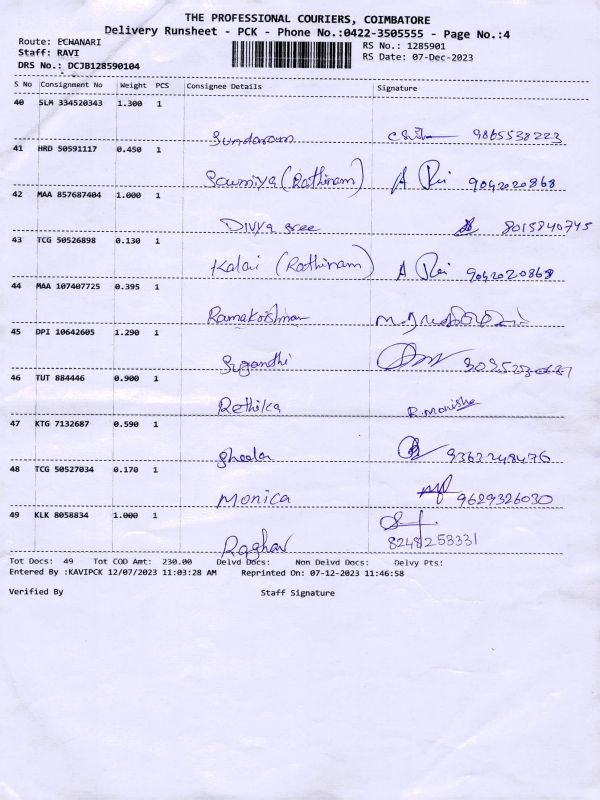 THE PROFESSIONAL COURIERS, COIMBATORE
Delivery Runsheet - PCK - Phone No.:0422-3505555 - Page No.:4
Route: ECHANARI
RS No.: 1285901
Staff: RAVI
RS Date: 07-Dec-2023
DRS No.: DCJB128590104
S No Consignment No Weight PCS Consignee Details Signature
40 SLM 334520343 1.300 1
Sundaram 9865538223
41 HRD 50591117 0.450 1
Sowmiya (Rathinam) 9042020868
42 MAA 857687404 1.000 1
Divya sree 8015840745
43 TCG 50526898 0.130 1
Kalai (Rathinam) 9042020868
44 MAA 107407725 0.395 1
Ramakrishnan
45 DPI 10642605 1.290 1
Sugandhi
46 TUT 884446 0.900 1
Rethika R. Monisha
47 KTG 7132687 0.590 1
9362248476
48 TCG 50527034 0.170 1
Monica 9629326030
49 KLK 8058834 1.000 1
Raghav 8248253331
Tot Docs: 49 Tot COD Amt: 230.00 Delvd Docs: Non Delvd Docs: Delvy Pts:
Entered By :KAVIPCK 12/07/2023 11:03:28 AM Reprinted On: 07-12-2023 11:46:58
Verified By Staff Signature